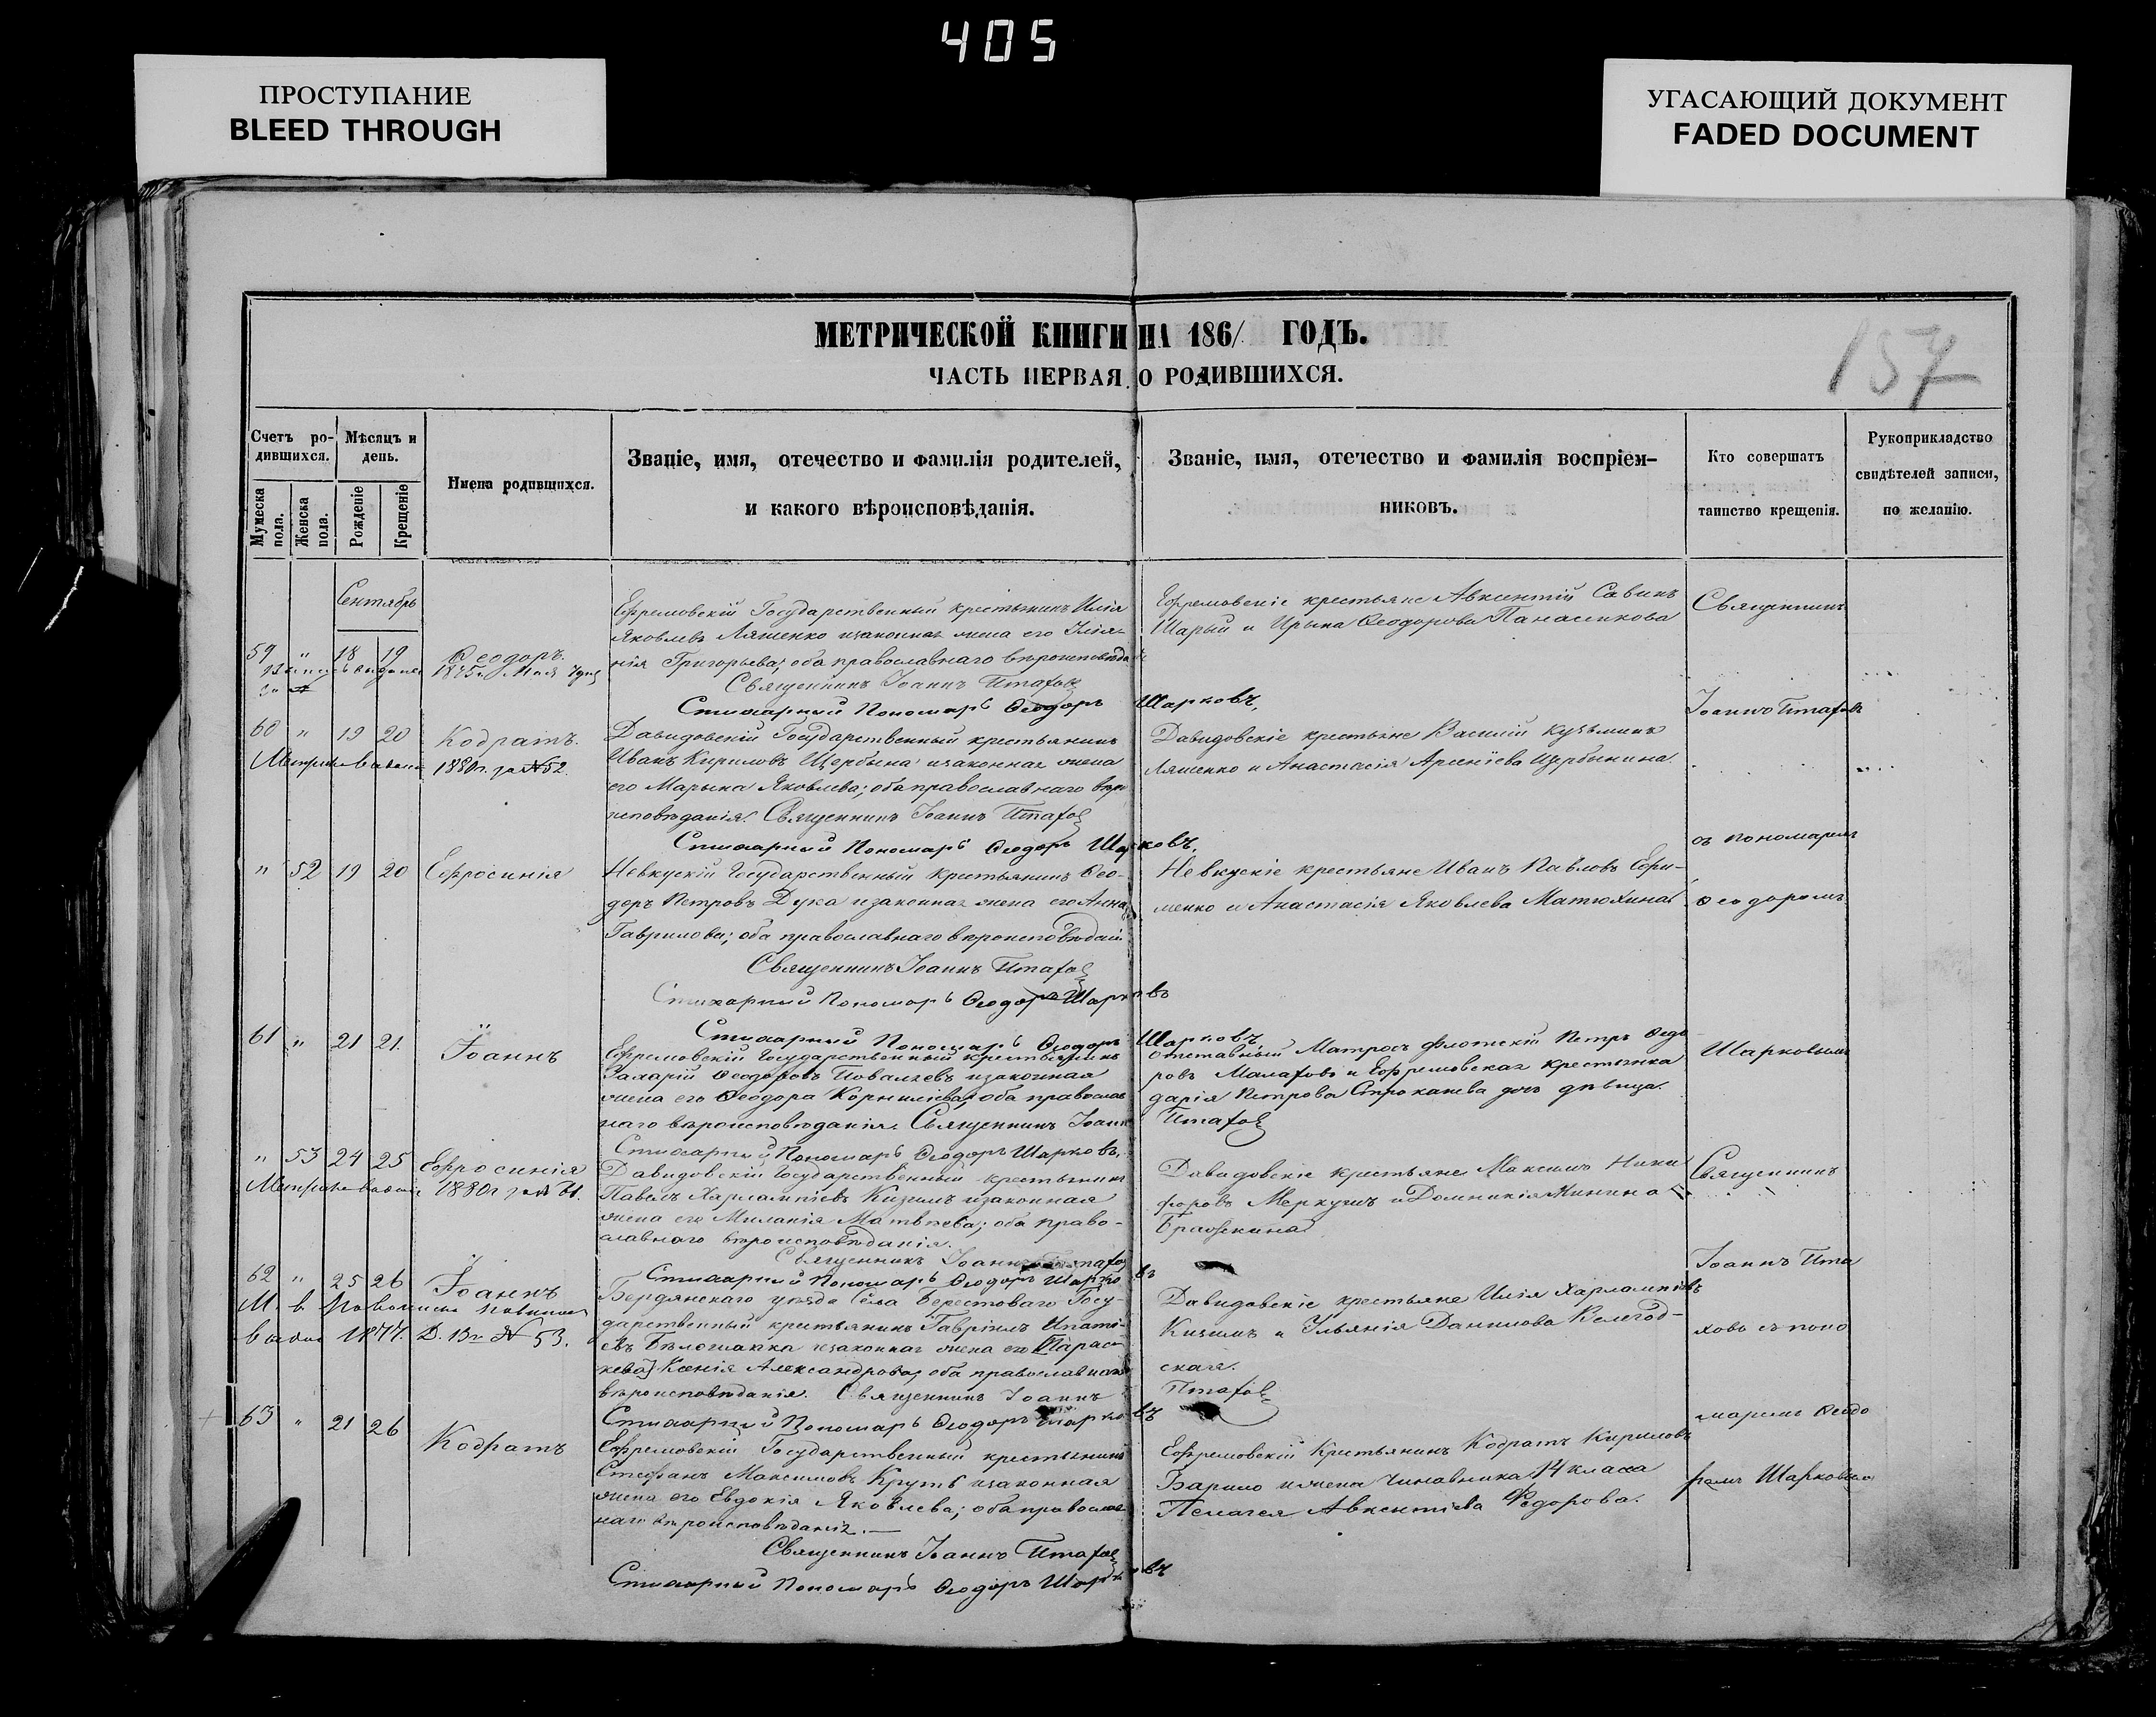 405
ПРОСТУПАНИЕ
BLEED THROUGH
УГАСАЮЩИЙ ДОКУМЕНТ
FADED DOCUMENT
МЕТРИЧЕСКОЙ КНИГИ НА 1861 ГОДЪ.
ЧАСТЬ ПЕРВАЯ, О РОДИВШИХСЯ.
157
Счетъ ро-
дившихся.
Мужеска пола.
Женска пола.
Мѣсяцъ и
день.
Рожденіе
Крещеніе
Имена родившихся.
Званіе, имя, отечество и фамилія родителей,
и какого вѣроисповѣданія.
Званіе, имя, отечество и фамилія воспріем-
никовъ.
Кто совершатъ
таинство крещенія.
Рукоприкладство
свидѣтелей записи,
по желанію.
Сентябрь
59 " 18 19 Ѳеодоръ.
1875 Мая
Ефремовскій Государственный крестьянинъ Илія
Яковлевъ Ляшенко изаконная жена его Улія-
нія Григорьева; оба православнаго вѣроисповѣда
Священникъ Іоаннъ Птаховъ
Стихарный Пономарь Ѳеодоръ Шарковъ.
Ефремовскіе крестьяне Авксентій Савинъ
Шарый и Ирына Ѳеодорова Панасенкова
Священникъ
60 " 19 20 Кодратъ.
1880 г. за № 52.
Давидовскій Государственный крестьянинъ
Иванъ Кириловъ Щербына изаконная жена
его Марына Яковлева; оба православнаго вѣро
исповѣданія. Священникъ Іоаннъ Птаховъ
Стихарный Пономарь Ѳеодоръ Шарковъ.
Давидовскіе крестьяне Василій Кузьминъ
Ляшенко и Анастасія Арсеніева Щербынина.
Іоаннъ Птаховъ
съ пономаремъ
" 52 19 20 Ефросинія
Невкускій Государственный крестьянинъ Ѳео-
доръ Петровъ Дука изаконная жена его Анна
Гаврилова; оба православнаго вѣроисповѣдані
Священникъ Іоаннъ Птаховъ
Стихарный Пономарь Ѳеодоръ Шарковъ
Невкускіе крестьяне Иванъ Павловъ Ефи-
менко и Анастасія Яковлева Матюхина
Ѳеодоромъ
61 " 21 21. Іоаннъ
Стихарный Пономарь Ѳеодоръ Шарковъ
Ефремовскій Государственный крестьянинъ
Захарій Ѳеодоровъ изаконная
жена его Ѳеодора Корниліева; оба православ
наго вѣроисповѣданія. Священникъ Іоаннъ Птаховъ
Стихарный Пономарь Ѳеодоръ Шарковъ.
отставный Матросъ флотскій Петръ Ѳедо
ровъ Малаховъ и Ефремовская крестьянка
дарія Петрова дочь дѣвица.
Шарковымъ
" 53 24 25 Ефросинія
1880 г.
Давидовскій Государственный крестьянинъ
Павелъ Харлампіевъ Кизимъ изаконная
жена его Миланія Матвѣева; оба право-
славнаго вѣроисповѣданія.
Священникъ Іоаннъ Птаховъ
Стихарный Пономарь Ѳеодоръ Шарковъ
Давидовскіе крестьяне Максимъ Ники
форовъ Меркушъ и Домникія
Священникъ
62 " 25 26 Іоаннъ
1877. № 53.
Бердянскаго уѣзда Села Берестоваго Госу-
дарственный крестьянинъ Гавріилъ Ипаті-
евъ Бѣлошапка изаконная жена его [Параск
кева] Ксенія Александрова; оба православнаго
вѣроисповѣданія. Священникъ Іоаннъ Птаховъ
Стихарный Пономарь Ѳеодоръ Шарковъ
Давидовскіе крестьяне Илія Харлампіевъ
Кизимъ и Ульянія Данилова Велегод-
ская.
Іоаннъ Пта
ховъ съ поно
63 " 21 26 Кодратъ
Ефремовскій Государственный крестьянинъ
Стефанъ Максимовъ Круть изаконная
жена его Евдокія Яковлева; оба православ
наго вѣроисповѣданія.—
Священникъ Іоаннъ Птаховъ
Стихарный Пономарь Ѳеодоръ Шарковъ
Ефремовскій Крестьянинъ Кодратъ Кириловъ
Барило и жена Чиновника 14 класса
Пелагея Авксентіева Федорова.
маремъ Ѳеодо
ромъ Шарковымъ